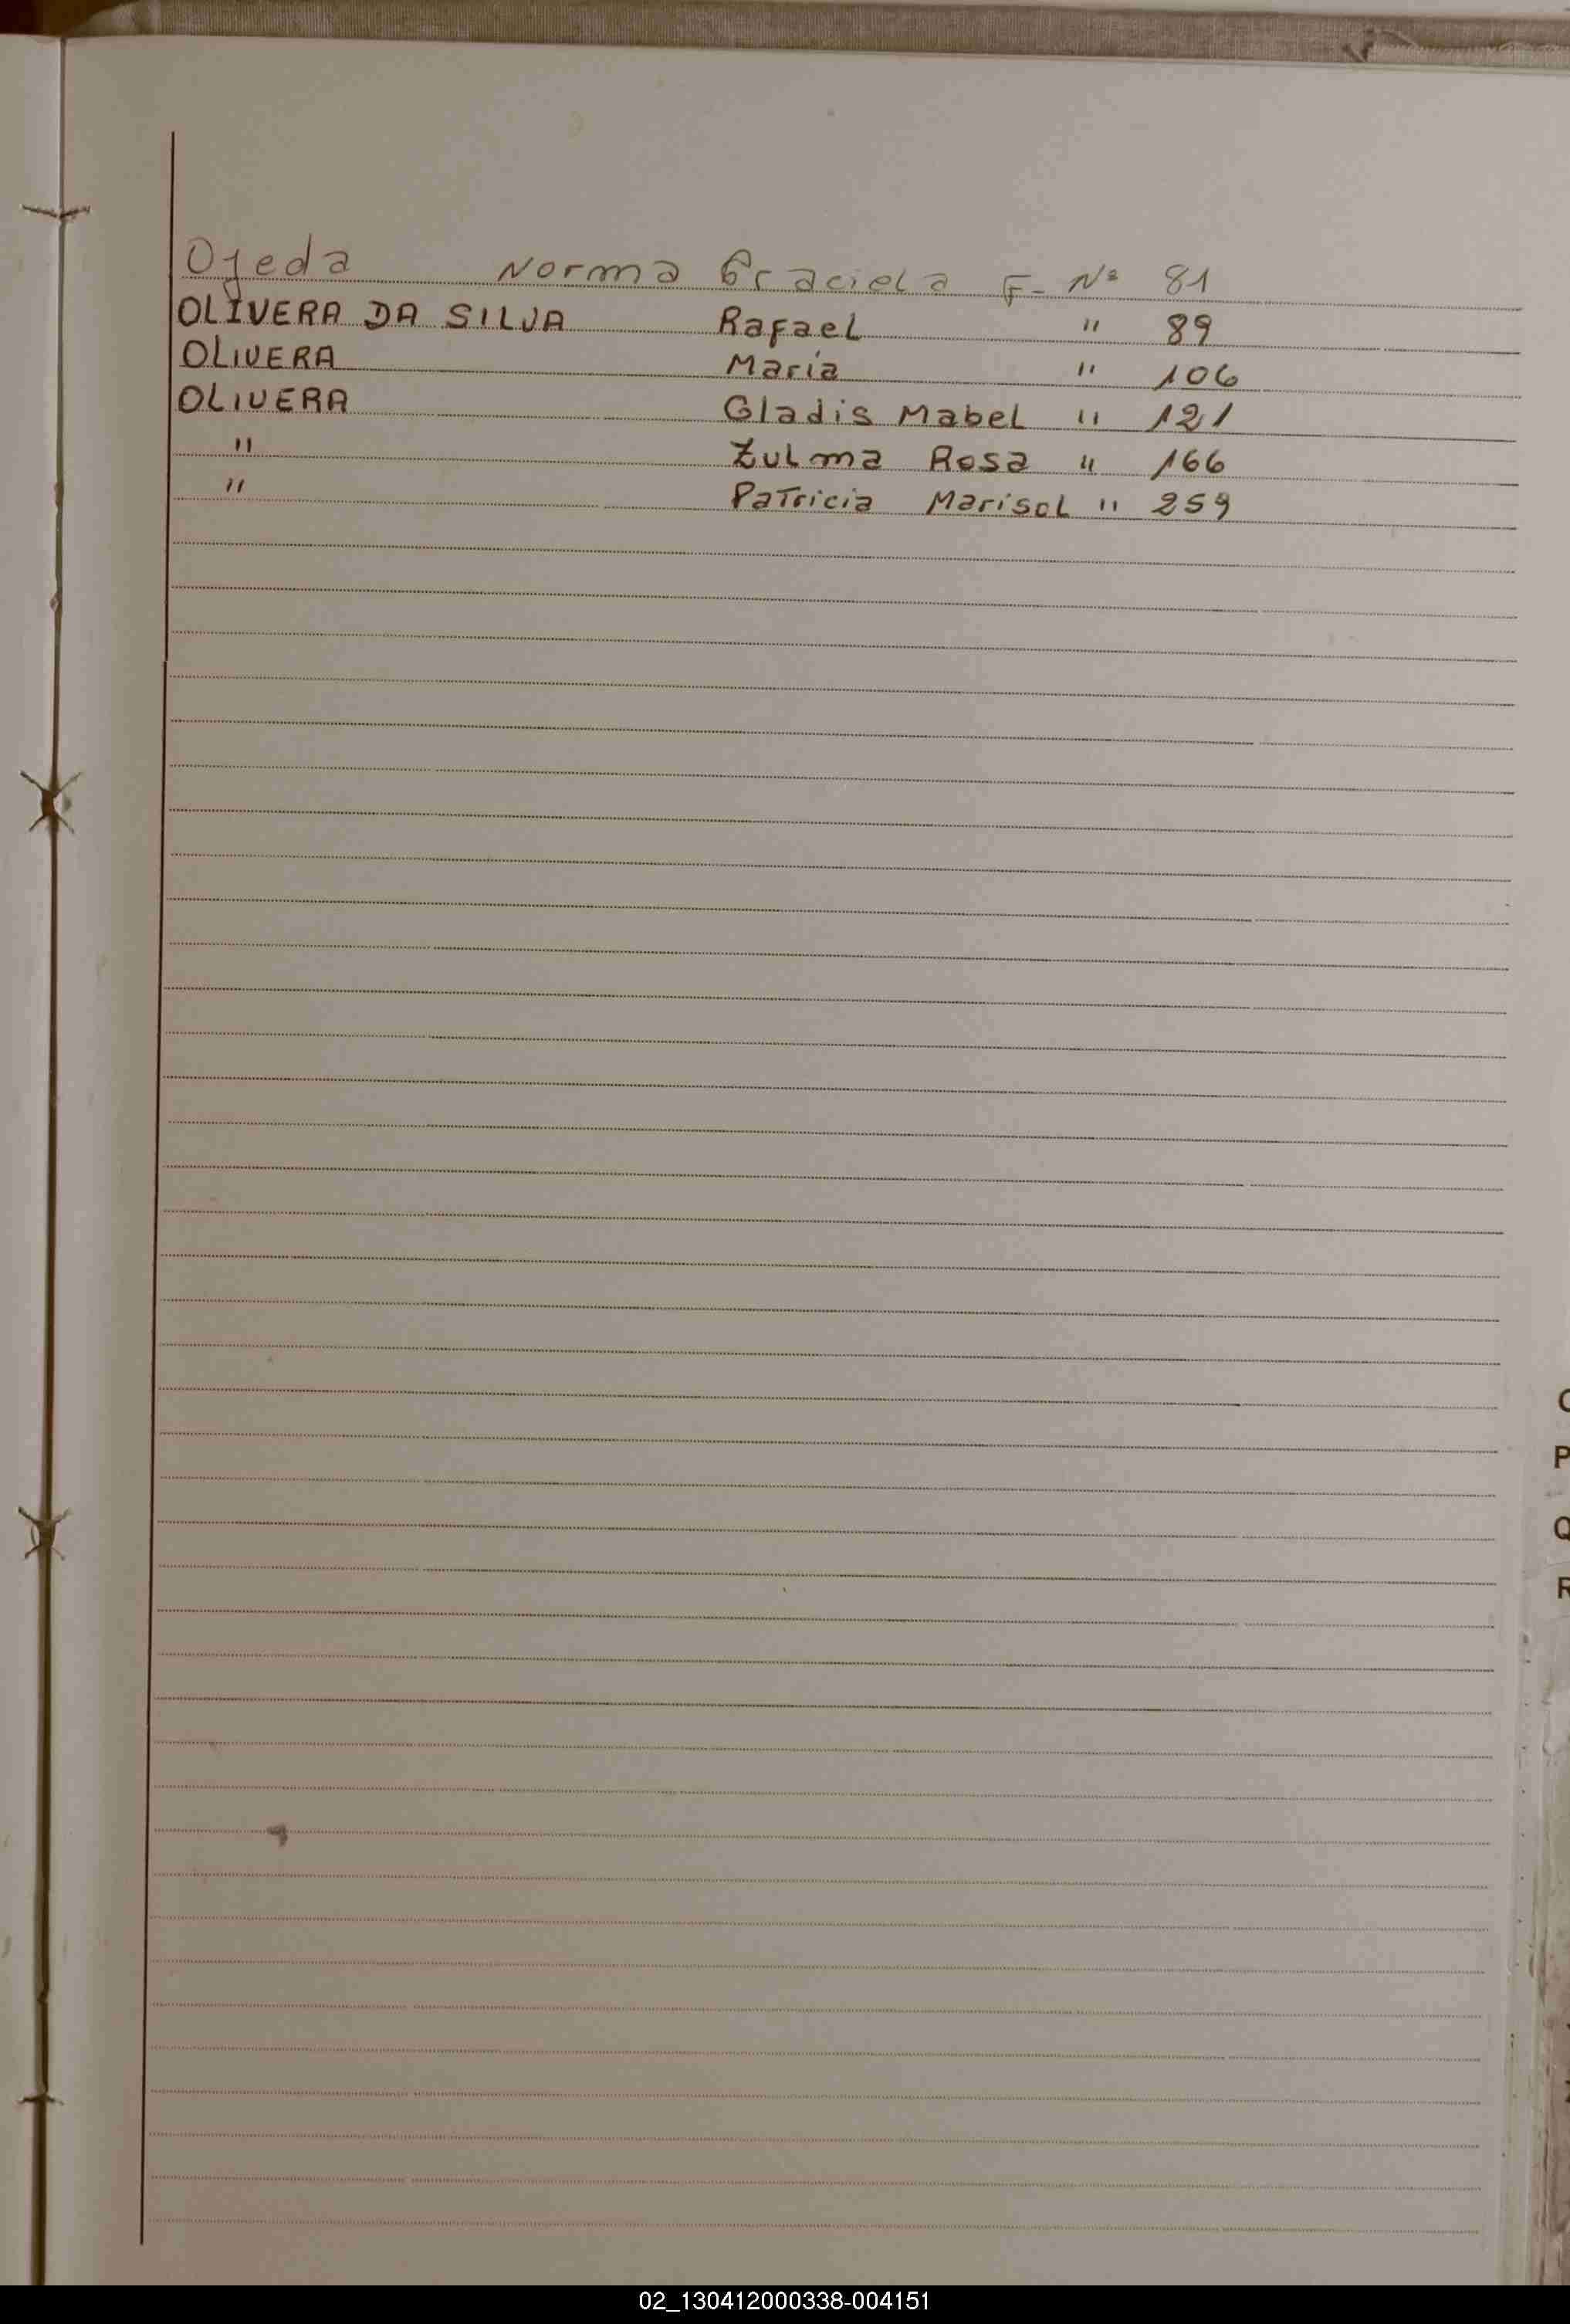 Ojeda Norma Graciela F- Nº 81
OLIVERA DA SILVA Rafael " 89
OLIVERA María " 106
OLIVERA Gladis Mabel " 121
" Zulma Rosa " 166
" Patricia Marisol " 259
P
Q
R
02_130412000338-004151